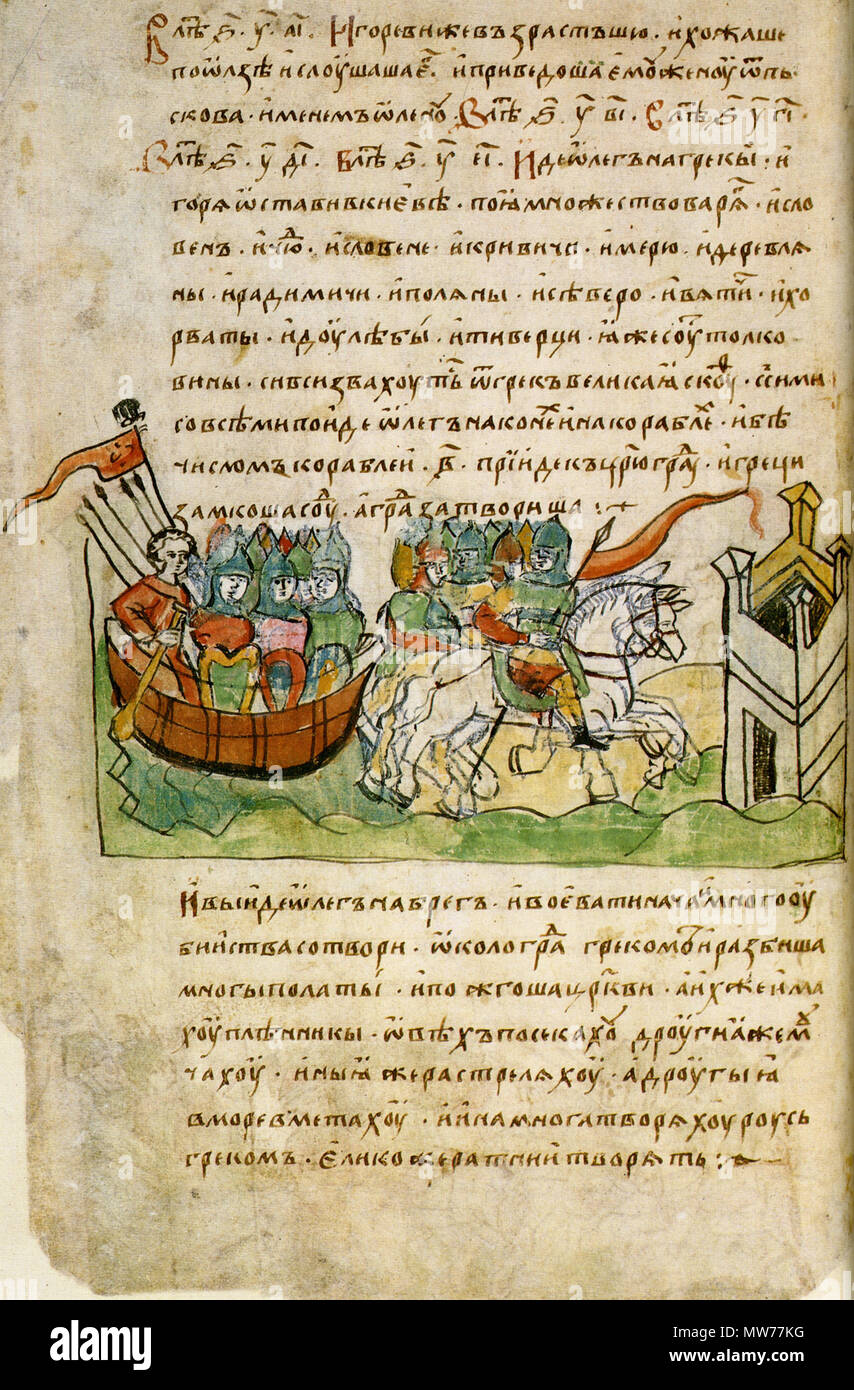 В лѣт҃ ѕ҃ . у҃ . аі҃ . Игореви же възрастъшю . и хожаше
по ѡлзѣ и слоушаша е҃г . и приведоша емоу женоу ѿ пь
скова . именемъ ѡленоу . В лѣт҃ ѕ҃ . у҃ ві҃ . В лѣт҃ ѕ҃ у҃ гі҃
В лѣт҃ ѕ҃ . у҃ ді҃ . В лѣт҃ ѕ҃ . у҃ еі҃ . Иде ѡлегъ на грекы . и
горѧ ѡставив киевѣ . поѩ множество варѧг . и сло
венъ . и чюд . и словене . и кривичи . и мерю . и деревлѧ
ны . и радимичи . и полѧны . и сѣверо . и вѧтичи . и хо
рваты . и доулѣбы . и тиверци . ꙗже соуть толко
вины . си вси звахоуть ѿ грекъ великаꙗ скоуф . с сими
со всѣми поиде ѡлегъ на конех и на кораблех . и бѣ
числомъ кораблеи . в҃ . прїиде къ ц҃рюградоу . и греци
замкоша соуд . а град затвориша :
И выиде ѡлегъ на брегъ . и воевати нача . и много оу
биїства сотвори . ѡколо града грекомъ . и разбиша
многы полаты . и пожгоша церкви . а их же има
хоу плѣнникы . ѡвѣхъ посекахоу дроугиꙗ же моу
чахоу . иныꙗ же растрелѧхоу . а дроугыꙗ
в море вметахоу . и ина многа творѧхоу роусь
грекомъ . елико же ратнии творѧть :
alamy
Image ID: MW77KG
www.alamy.com